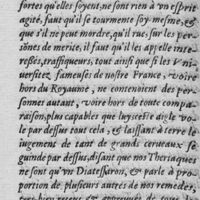 fortes qu'elles soyent, ne font rien à vn esprit
agité, faut qu'il se tourmente soy mesme, &
que s'il ne peut mordre, qu'il rue, sur les per
sõnes de merite, il faut qu'il les appelle inte
ressés, traffiqueurs, tout ainsi que si les V
niuersitez fameuses de nostre France, voire
hors du Royaume, ne contenoient des per
sonnes autant, voire hors de toute compa
raison, plus capables que luy: cest aigle vo
le par dessus tout cela, & laissant à terre le
iugement de tant de grands cerueaux se
guinde par dessus, disant que nos Theriaques
ne sont qu'vn Diatessaron, & parle à pro
portion de plusieurs autres de nos remedes,
tres bien receus & approuués de tous